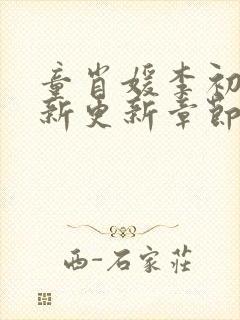 童肖媛李初
新更新章節
西-石家莊